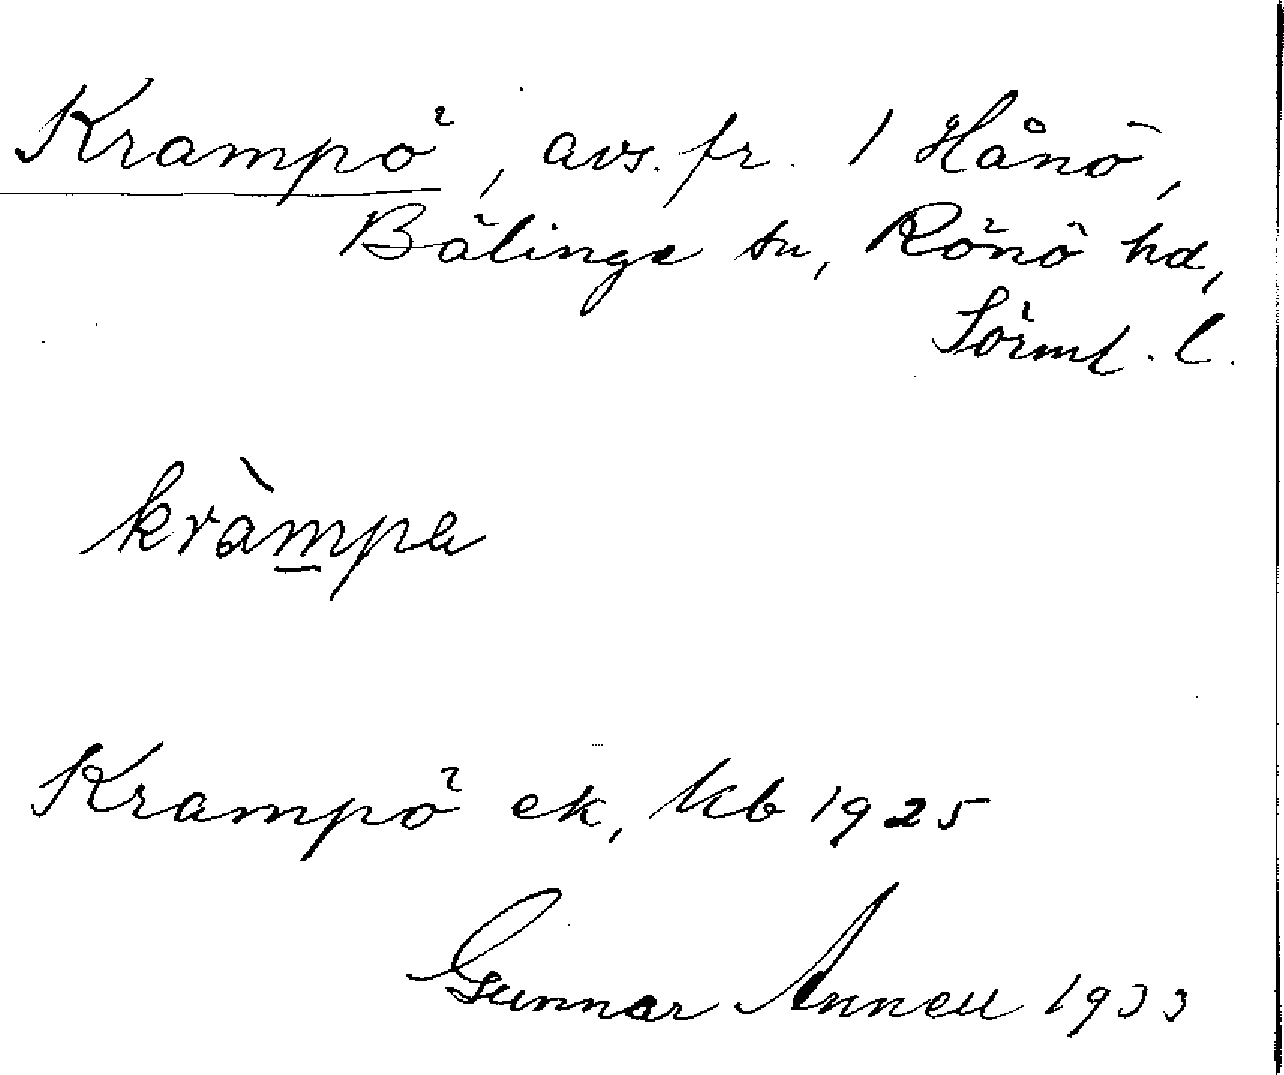 Krampö, avs. fr. 1 Hånö,
Bälinge sn, Rönö hd,
Sörml. l.
kràmpa
Krampö ek, kb 1925
Gunnar Annell 1933